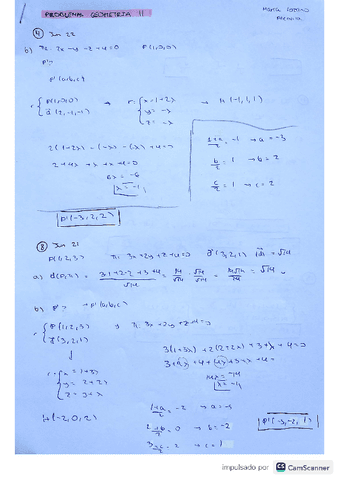 PROBLEMA GEOMETRÍA II
María Lozano
④ Jun 22
b) π: 2x - y - z + 4 = 0    P(1,0,0)
P'?
P'(a,b,c)
r: { P(1,0,0)  d(2,-1,-1) → r: { x=1+2λ  y=-λ  z=-λ → M(-1,1,1)
2(1+2λ) - (-λ) - (-λ) + 4 = 0
2 + 4λ + λ + λ + 4 = 0
6λ = -6
λ = -1
(1+a)/2 = -1 → a = -3
b/2 = 1 → b = 2
c/2 = 1 → c = 2
P'(-3,2,2)
⑧ Jun 21
P(1,2,3)    π: 3x+2y+z+4=0    d(3,2,1)    |d| = √14
a) d(P,π) = (3·1+2·2+3+4)/√14 = 14/√14 · √14/√14 = 14√14/14 = √14
b) P'? → P'(a,b,c)
r: { P(1,2,3)  d(3,2,1)    y    π: 3x+2y+z+4=0
3(1+3λ)+2(2+2λ)+3+λ+4=0
3+9λ+4+4λ+3+λ+4=
14λ = -14
λ = -1
r: { x=1+3λ  y=2+2λ  z=3+λ
M(-2,0,2)
(1+a)/2 = -2 → a = -5
(2+b)/2 = 0 → b = -2
(3+c)/2 = 2 → c = 1
P'(-5,-2,1)
impulsado por CS CamScanner